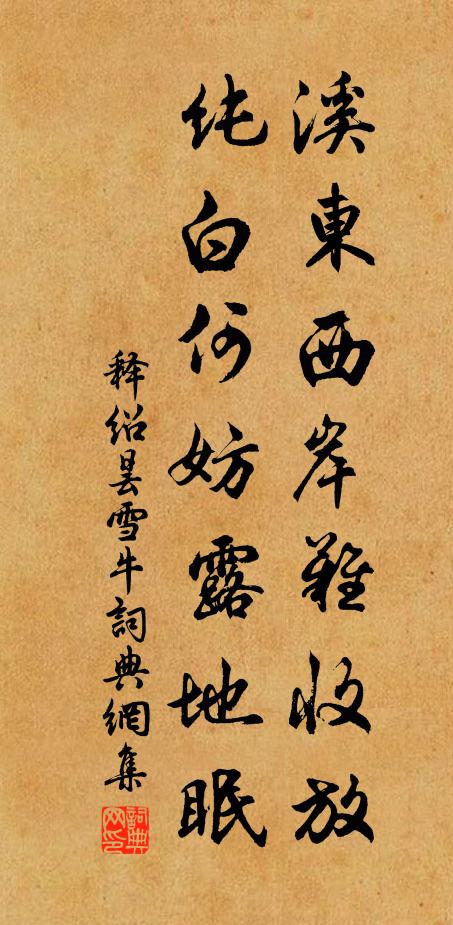 溪東西岸難收放
纯白何妨露地眠
释绍昙雪牛詞典網集
詞典网印